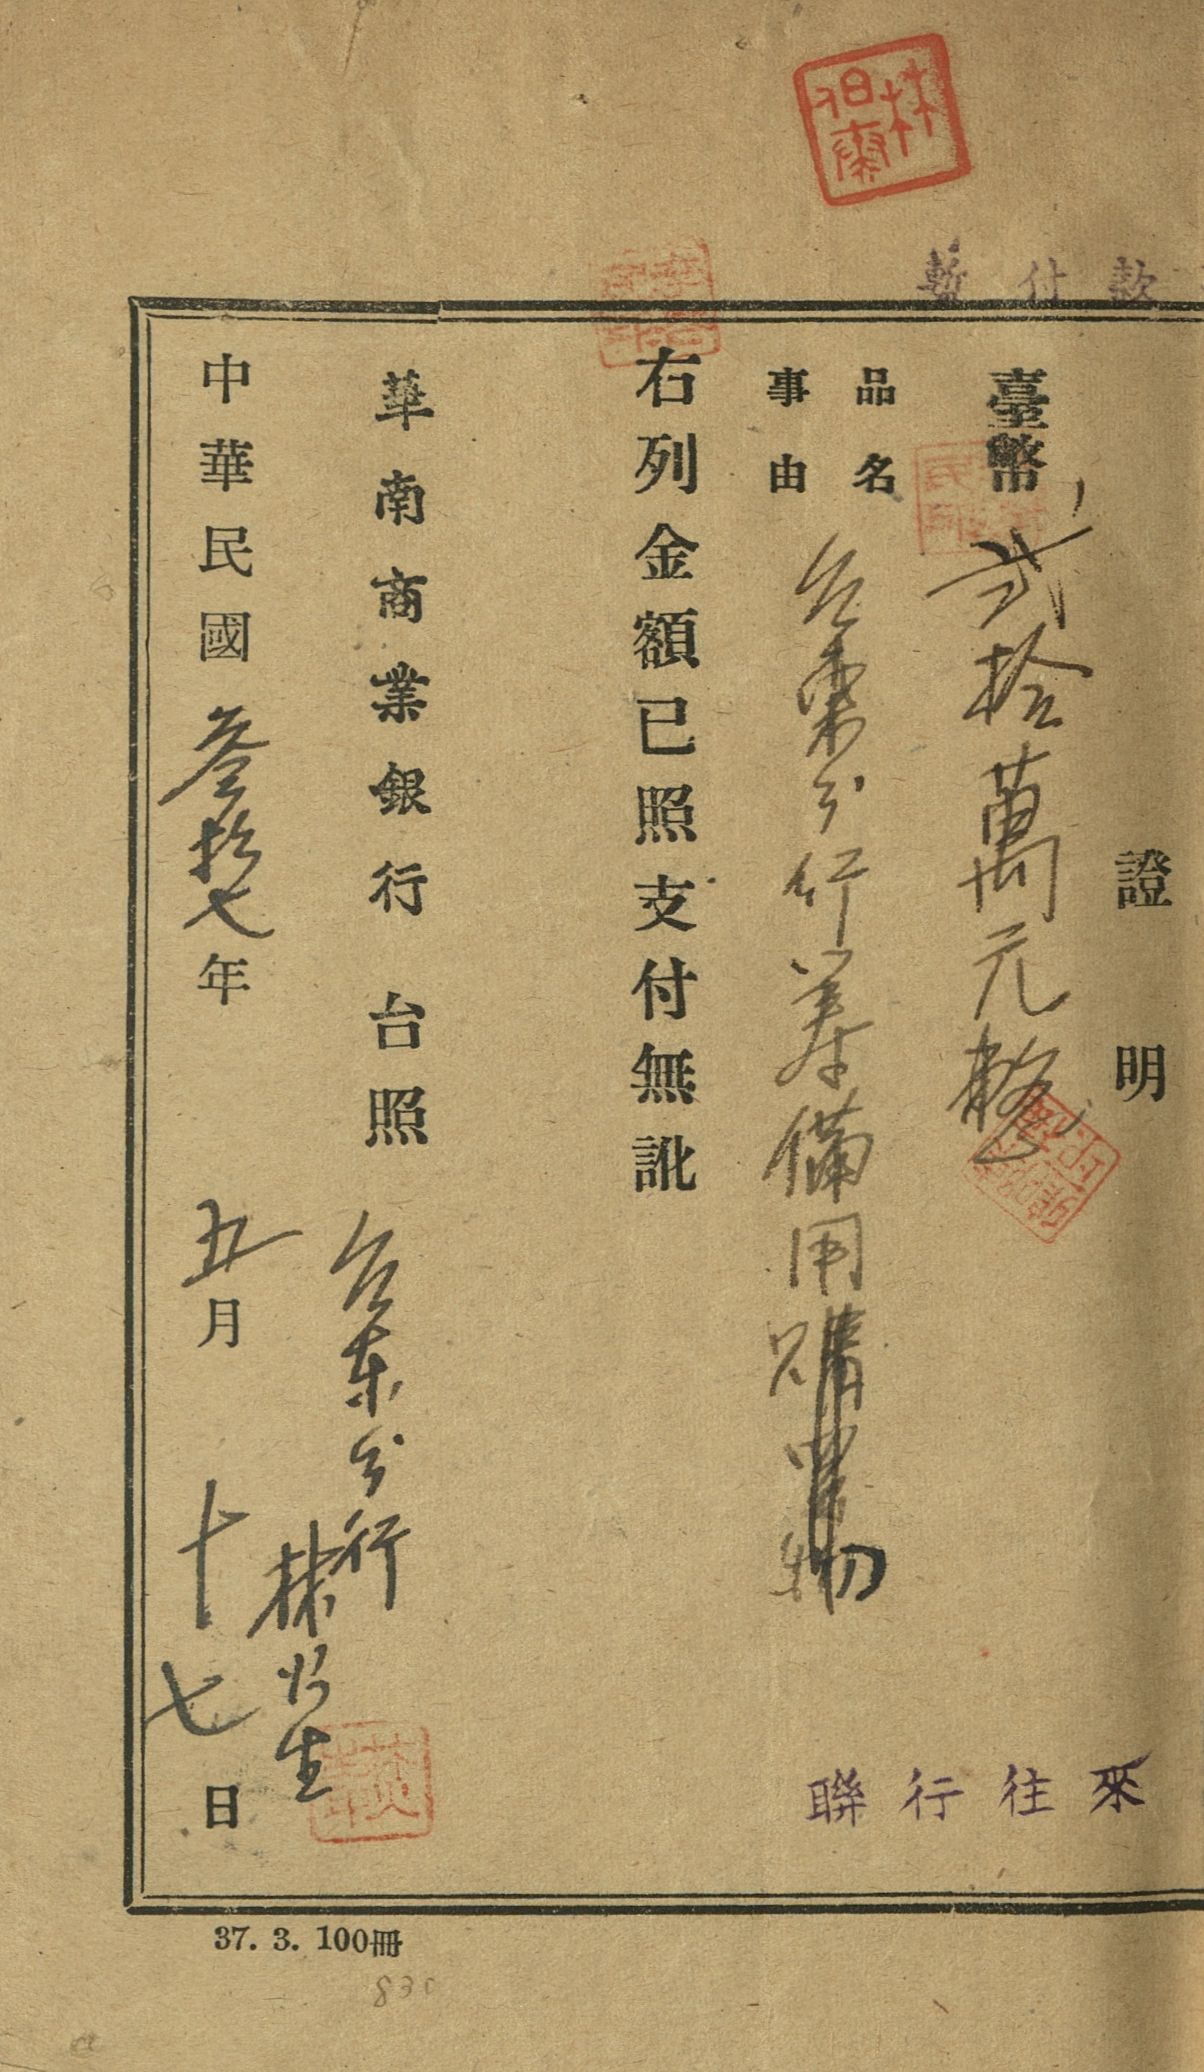 暫付款
證明
臺幣 弍拾萬元整
品名
事由
台東分行籌備用購買物
右列金額已照支付無訛
華南商業銀行 台照
台東分行
林 生
中華民國 叁拾七年 五月 十七日
聯行往來
37. 3. 100冊
830